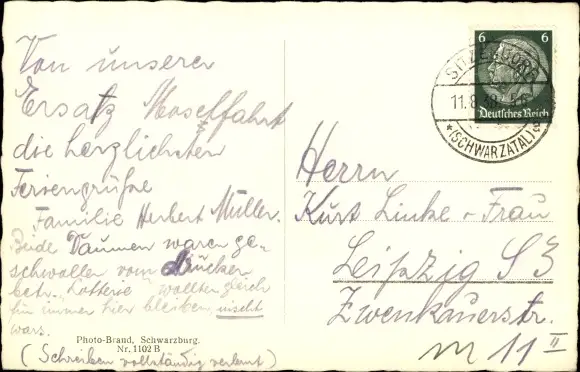 Von unserer
Ersatz Moselfahrt
die herzlichsten
Feriengrüße
Familie Herbert Müller.
Beide Daumen waren ge-
schwollen vom Drücken
betr. Lotterie wollten gleich
für immer hier bleiben, nischt
wars.
Photo-Brand, Schwarzburg.
Nr. 1102 B
(Schreiben vollständig verlernt)
6 6
Deutsches Reich
SITZENDORF
11.8.38
*(SCHWARZATAL)
Herrn
Kurt Linke u. Frau
Leipzig S 3
Zwenkauerstr.
11 II